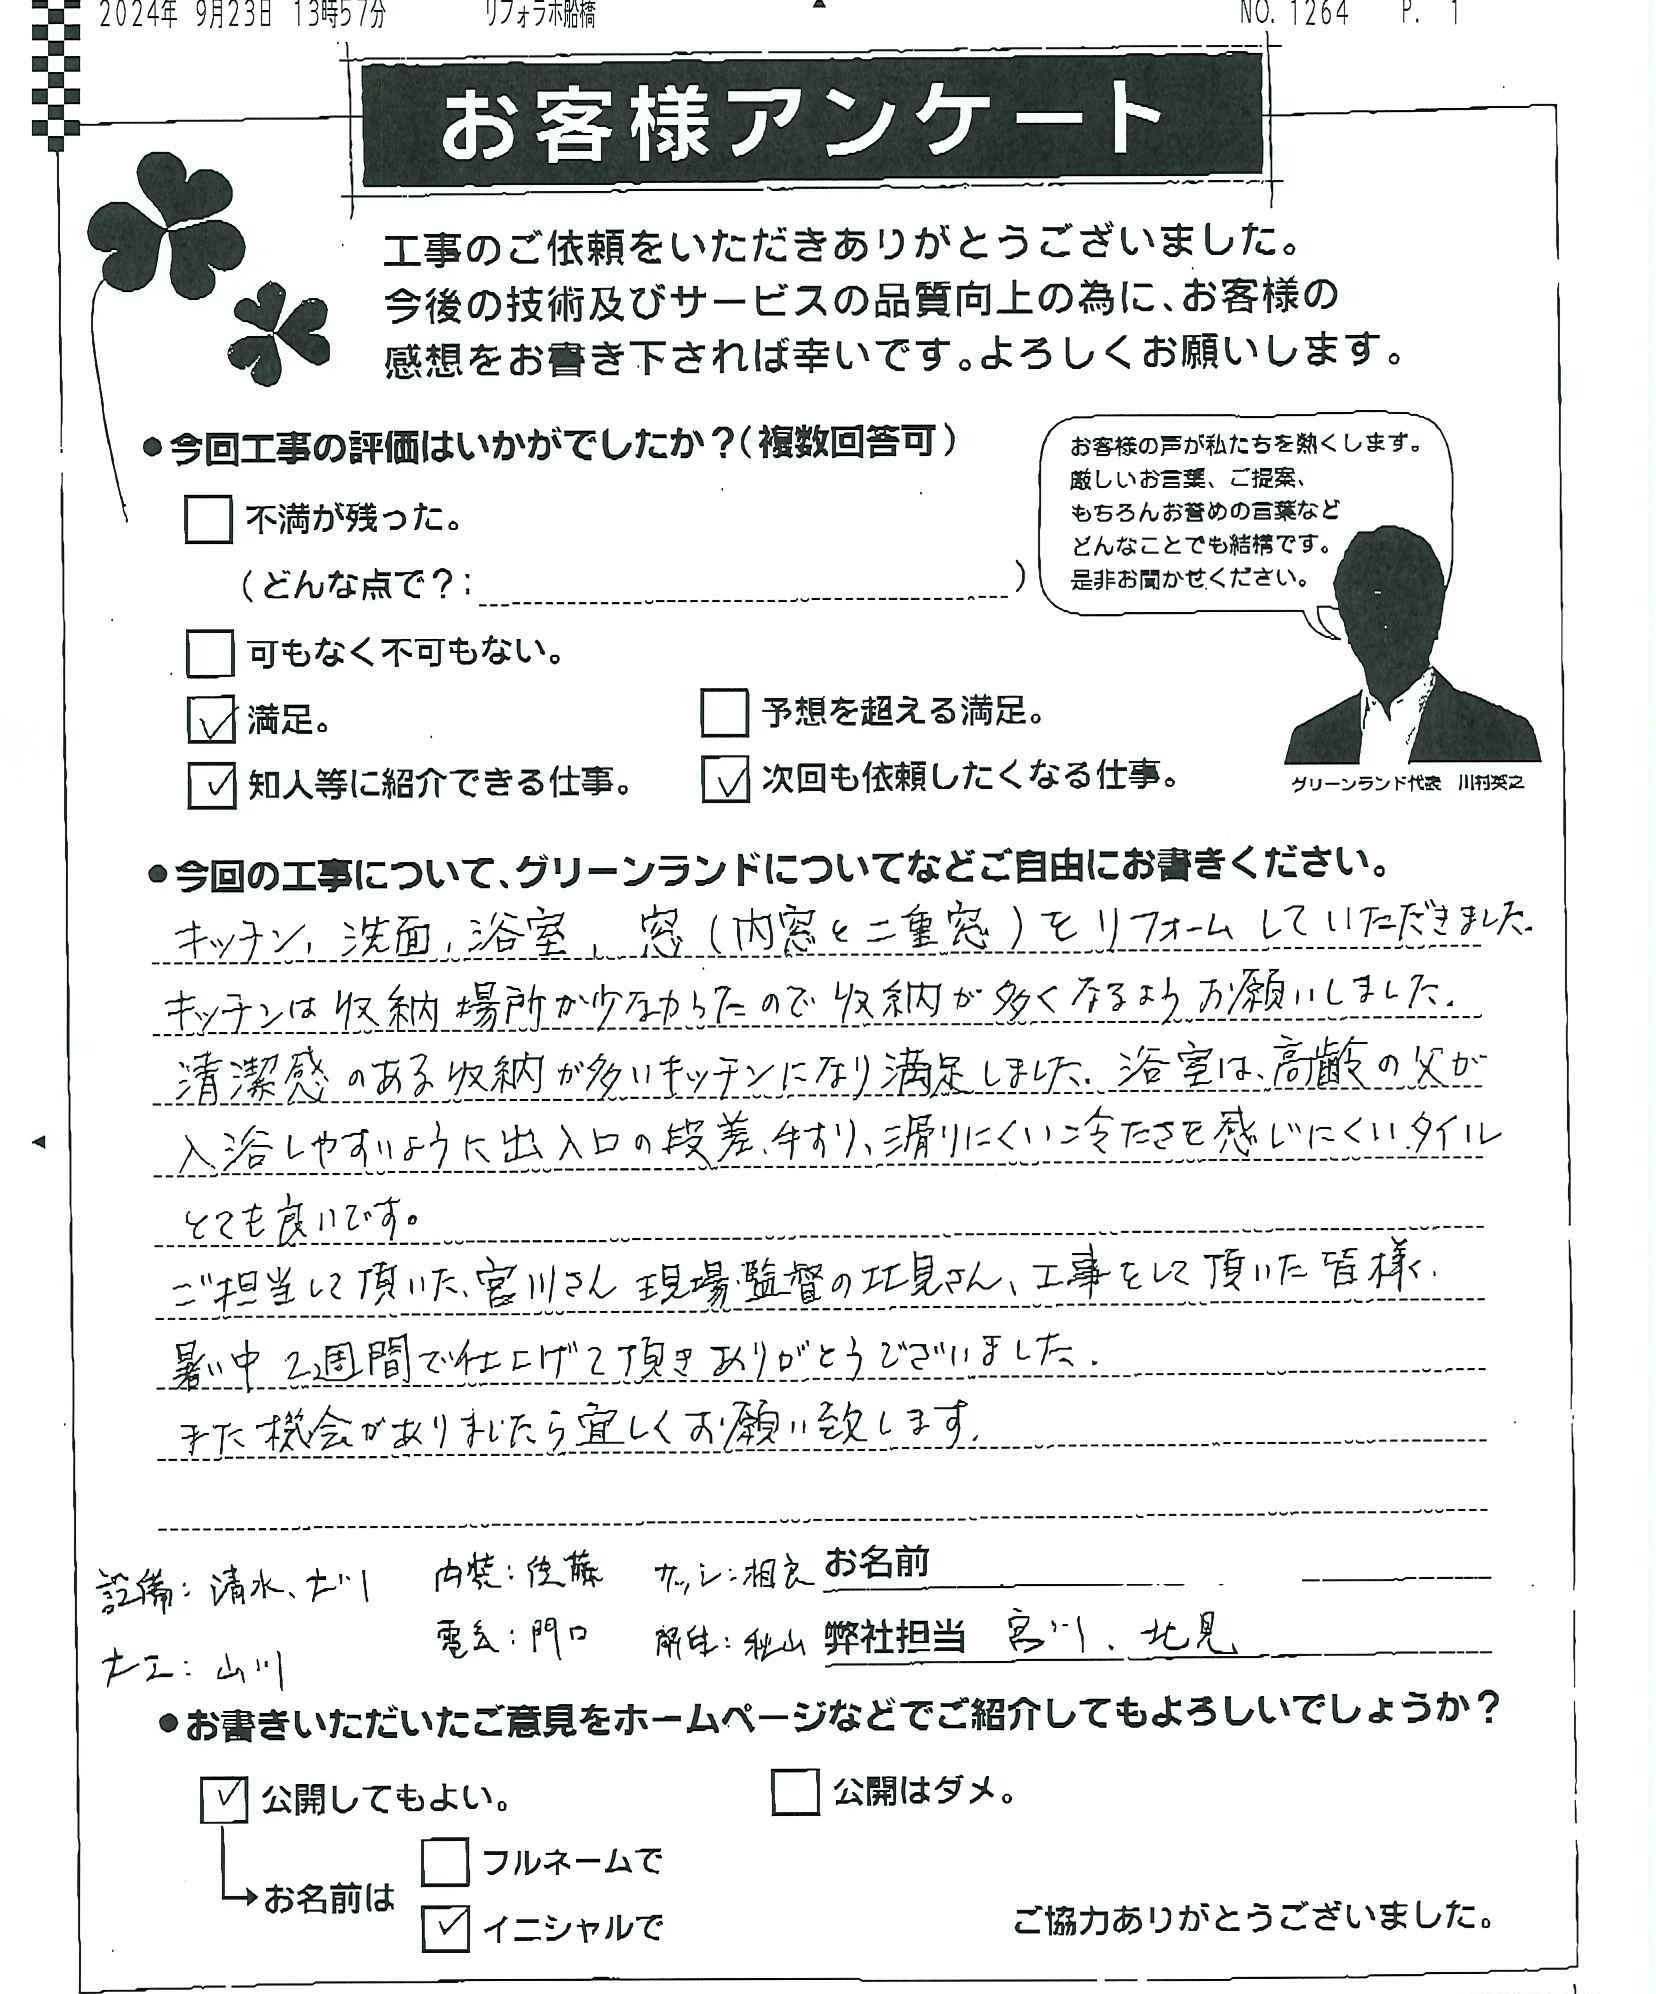 2024年 9月23日 13時57分 リフォラボ船橋 NO. 1264 P. 1
お客様アンケート
工事のご依頼をいただきありがとうございました。
今後の技術及びサービスの品質向上の為に、お客様の
感想をお書き下されば幸いです。よろしくお願いします。
●今回工事の評価はいかがでしたか？（複数回答可）
お客様の声が私たちを熱くします。
厳しいお言葉、ご提案、
もちろんお誉めの言葉など
どんなことでも結構です。
是非お聞かせください。
グリーンランド代表 川村英之
不満が残った。
（どんな点で？： ）
可もなく不可もない。
満足。 予想を超える満足。
知人等に紹介できる仕事。 次回も依頼したくなる仕事。
●今回の工事について、グリーンランドについてなどご自由にお書きください。
キッチン、洗面、浴室、窓（内窓と二重窓）をリフォームしていただきました。
キッチンは収納場所が少なかったので収納が多くなるようお願いしました。
清潔感のある収納が多いキッチンになり満足しました。浴室は、高齢の父が
入浴しやすいように出入口の段差、手すり、滑りにくい冷たさを感じにくいタイル
とても良いです。
ご担当して頂いた、宮川さん 現場監督の北見さん、工事をして頂いた皆様、
暑い中 2週間で仕上げて頂きありがとうございました。
また機会がありましたら宜しくお願い致します。
設備：清水、 内装：佐藤 サッシ：相良 お名前
電気：門口 解体：秋山 弊社担当 宮川、北見
大工：山川
●お書きいただいたご意見をホームページなどでご紹介してもよろしいでしょうか？
公開してもよい。 公開はダメ。
フルネームで
お名前は
イニシャルで
ご協力ありがとうございました。